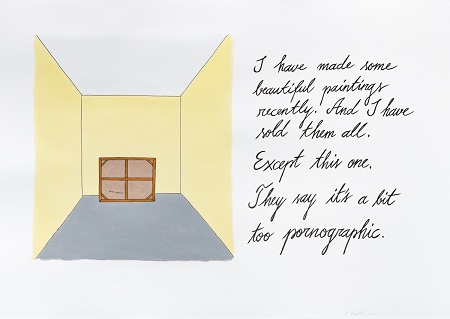 I have made some
beautiful paintings
recently. And I have
sold them all.
Except this one.
They say it's a bit
too pornographic.